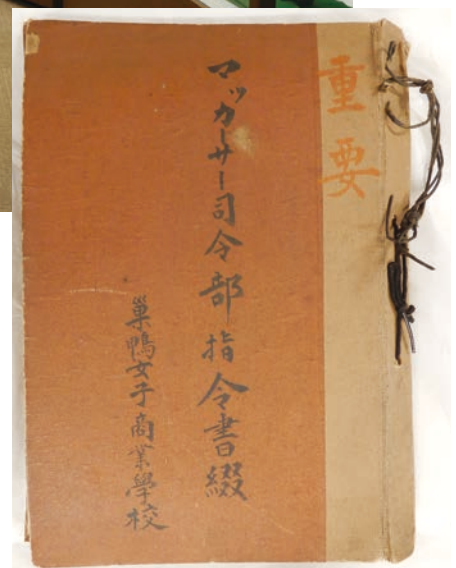 重要
マッカーサー司令部指令書綴
巣鴨女子商業學校